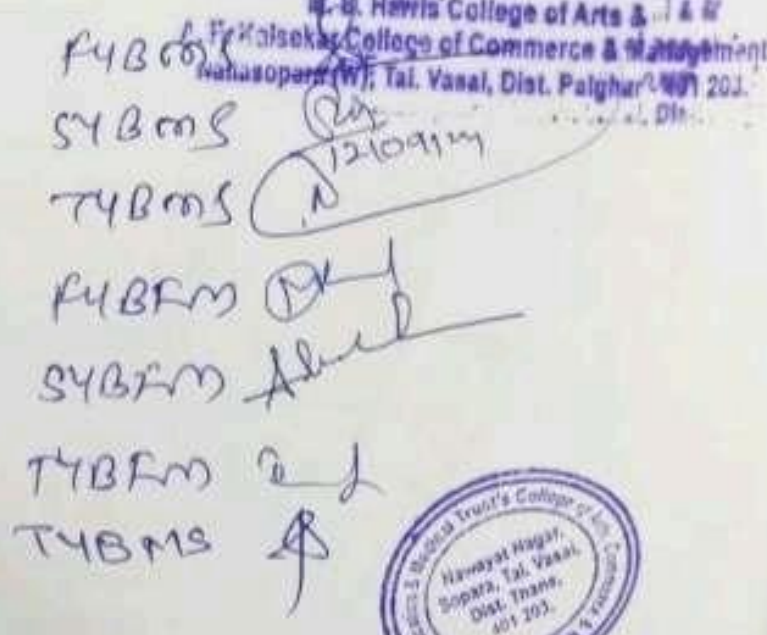 Harris College of Arts &
College of Commerce & Management
Nallasopara (W), Tal. Vasai, Dist. Palghar 401 203.
FYBMS
SYBMS
12/09/19
TYBMS
FYBFM
SYBFM
TYBFM
TYBMS
& Medical Trust's College of Arts, Commerce &
Nawayat Nagar,
Sopara, Tal. Vasai,
Dist. Thane,
401 203.